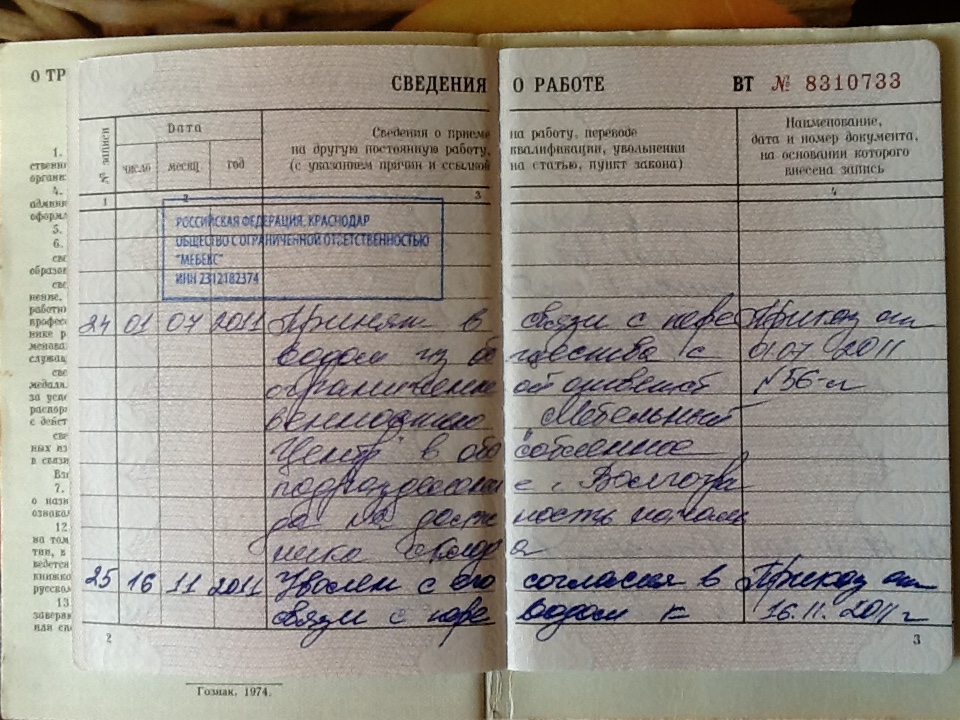 О ТР
СВЕДЕНИЯ О РАБОТЕ ВТ № 8310733
№ записи
Дата
число
месяц
год
Сведения о приеме на работу, переводе
на другую постоянную работу, квалификации, увольнении
(с указанием причин и ссылкой на статью, пункт закона)
Наименование,
дата и номер документа,
на основании которого
внесена запись
1 2 3 4
РОССИЙСКАЯ ФЕДЕРАЦИЯ, КРАСНОДАР
ОБЩЕСТВО С ОГРАНИЧЕННОЙ ОТВЕТСТВЕННОСТЬЮ
"МЕБЕКС"
ИНН 2312182374
24 01 07 2011 Принят в связи с пере Приказ от
водом из общества с 01.07 2011
ограниченной ответст №56-л
венностью "Мебельный
Центр" в обособленное
подразделение г. Волгогра
да на должность началь
ника склада
25 16 11 2011 Уволен с его согласия в Приказ от
связи с переводом к 16.11.2011 г
2 3
1.
ственно
органи
4.
админи
оформл
5.
6.
све
образов
све
нение.
работн
професс
нике р
менова
служащ
све
медаля
за успе
распор
с дейст
све
ных из
в связи
Вз
7.
о назн
ознаком
12
на том
тии, в
ведется
книжко
русском
13
заверя
или спе
Гознак. 1974.